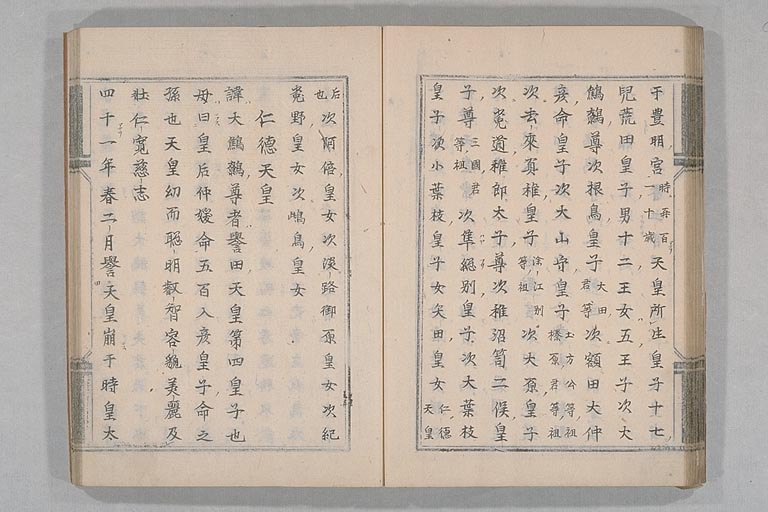 于豊明宮時年百三十歳天皇所生皇子十七
児荒田皇子男十二王女五王子次大
鷦鷯尊次根鳥皇子大田君等次額田大仲
彦命皇子次大山守皇子土方公等祖榛原君等祖
次去來真稚皇子深江別等祖次大原皇子
次菟道稚郎太子尊次稚沼笥二俣皇
子尊三國君等祖次隼総別皇子次大葉枝
皇子次小葉枝皇子女矢田皇女仁徳天皇
后也次阿倍皇女次淡路御原皇女次紀
菟野皇女次鳥皇女
仁德天皇
諱大鷦鷯尊者譽田天皇第四皇子也
母曰皇后仲媛命五百入彦皇子命之
孫也天皇幼而聡明叡智容貌美麗及
壮仁寛慈志
四十一年春二月譽天皇崩于時皇太